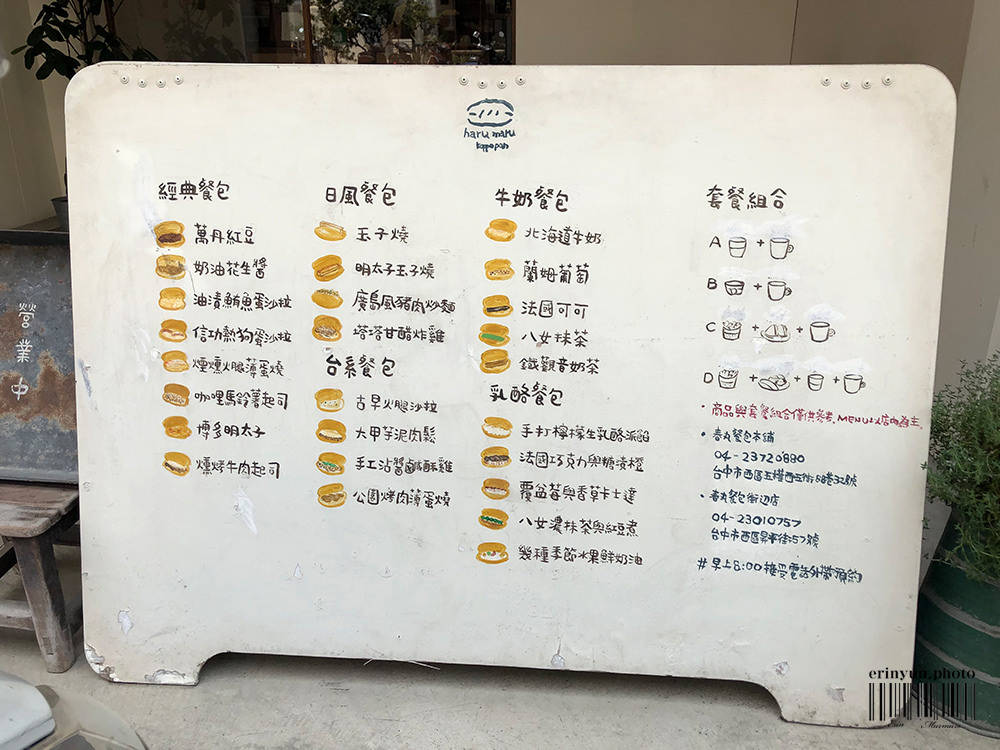 haru maru
koppepan
經典餐包
萬丹紅豆
奶油花生醬
油漬鮪魚蛋沙拉
信功熱狗蛋沙拉
煙燻火腿薄蛋燒
咖哩馬鈴薯起司
博多明太子
燻烤牛肉起司
日風餐包
玉子燒
明太子玉子燒
廣島風豬肉炒麵
塔塔甘醋炸雞
台系餐包
古早火腿沙拉
大甲芋泥肉鬆
手工沾醬鹹酥雞
公園烤肉薄蛋燒
牛奶餐包
北海道牛奶
蘭姆葡萄
法國可可
八女抹茶
鐵觀音奶茶
乳酪餐包
手打檸檬生乳酪派餡
法國巧克力與糖漬橙
覆盆莓與香草卡士達
八女濃抹茶與紅豆煮
幾種季節水果鮮奶油
套餐組合
A + 
B + 
C + +
D + + +
• 商品與套餐組合僅供參考、MENU以店內為主.
• 春丸餐包本舖
04-23720880
台中市西區五權西五街88巷32號
• 春丸餐包街辺店
04-23010757
台中市西區昇平街57號
#早上8:00接受電話外帶預約
營業中
erinyun.photo